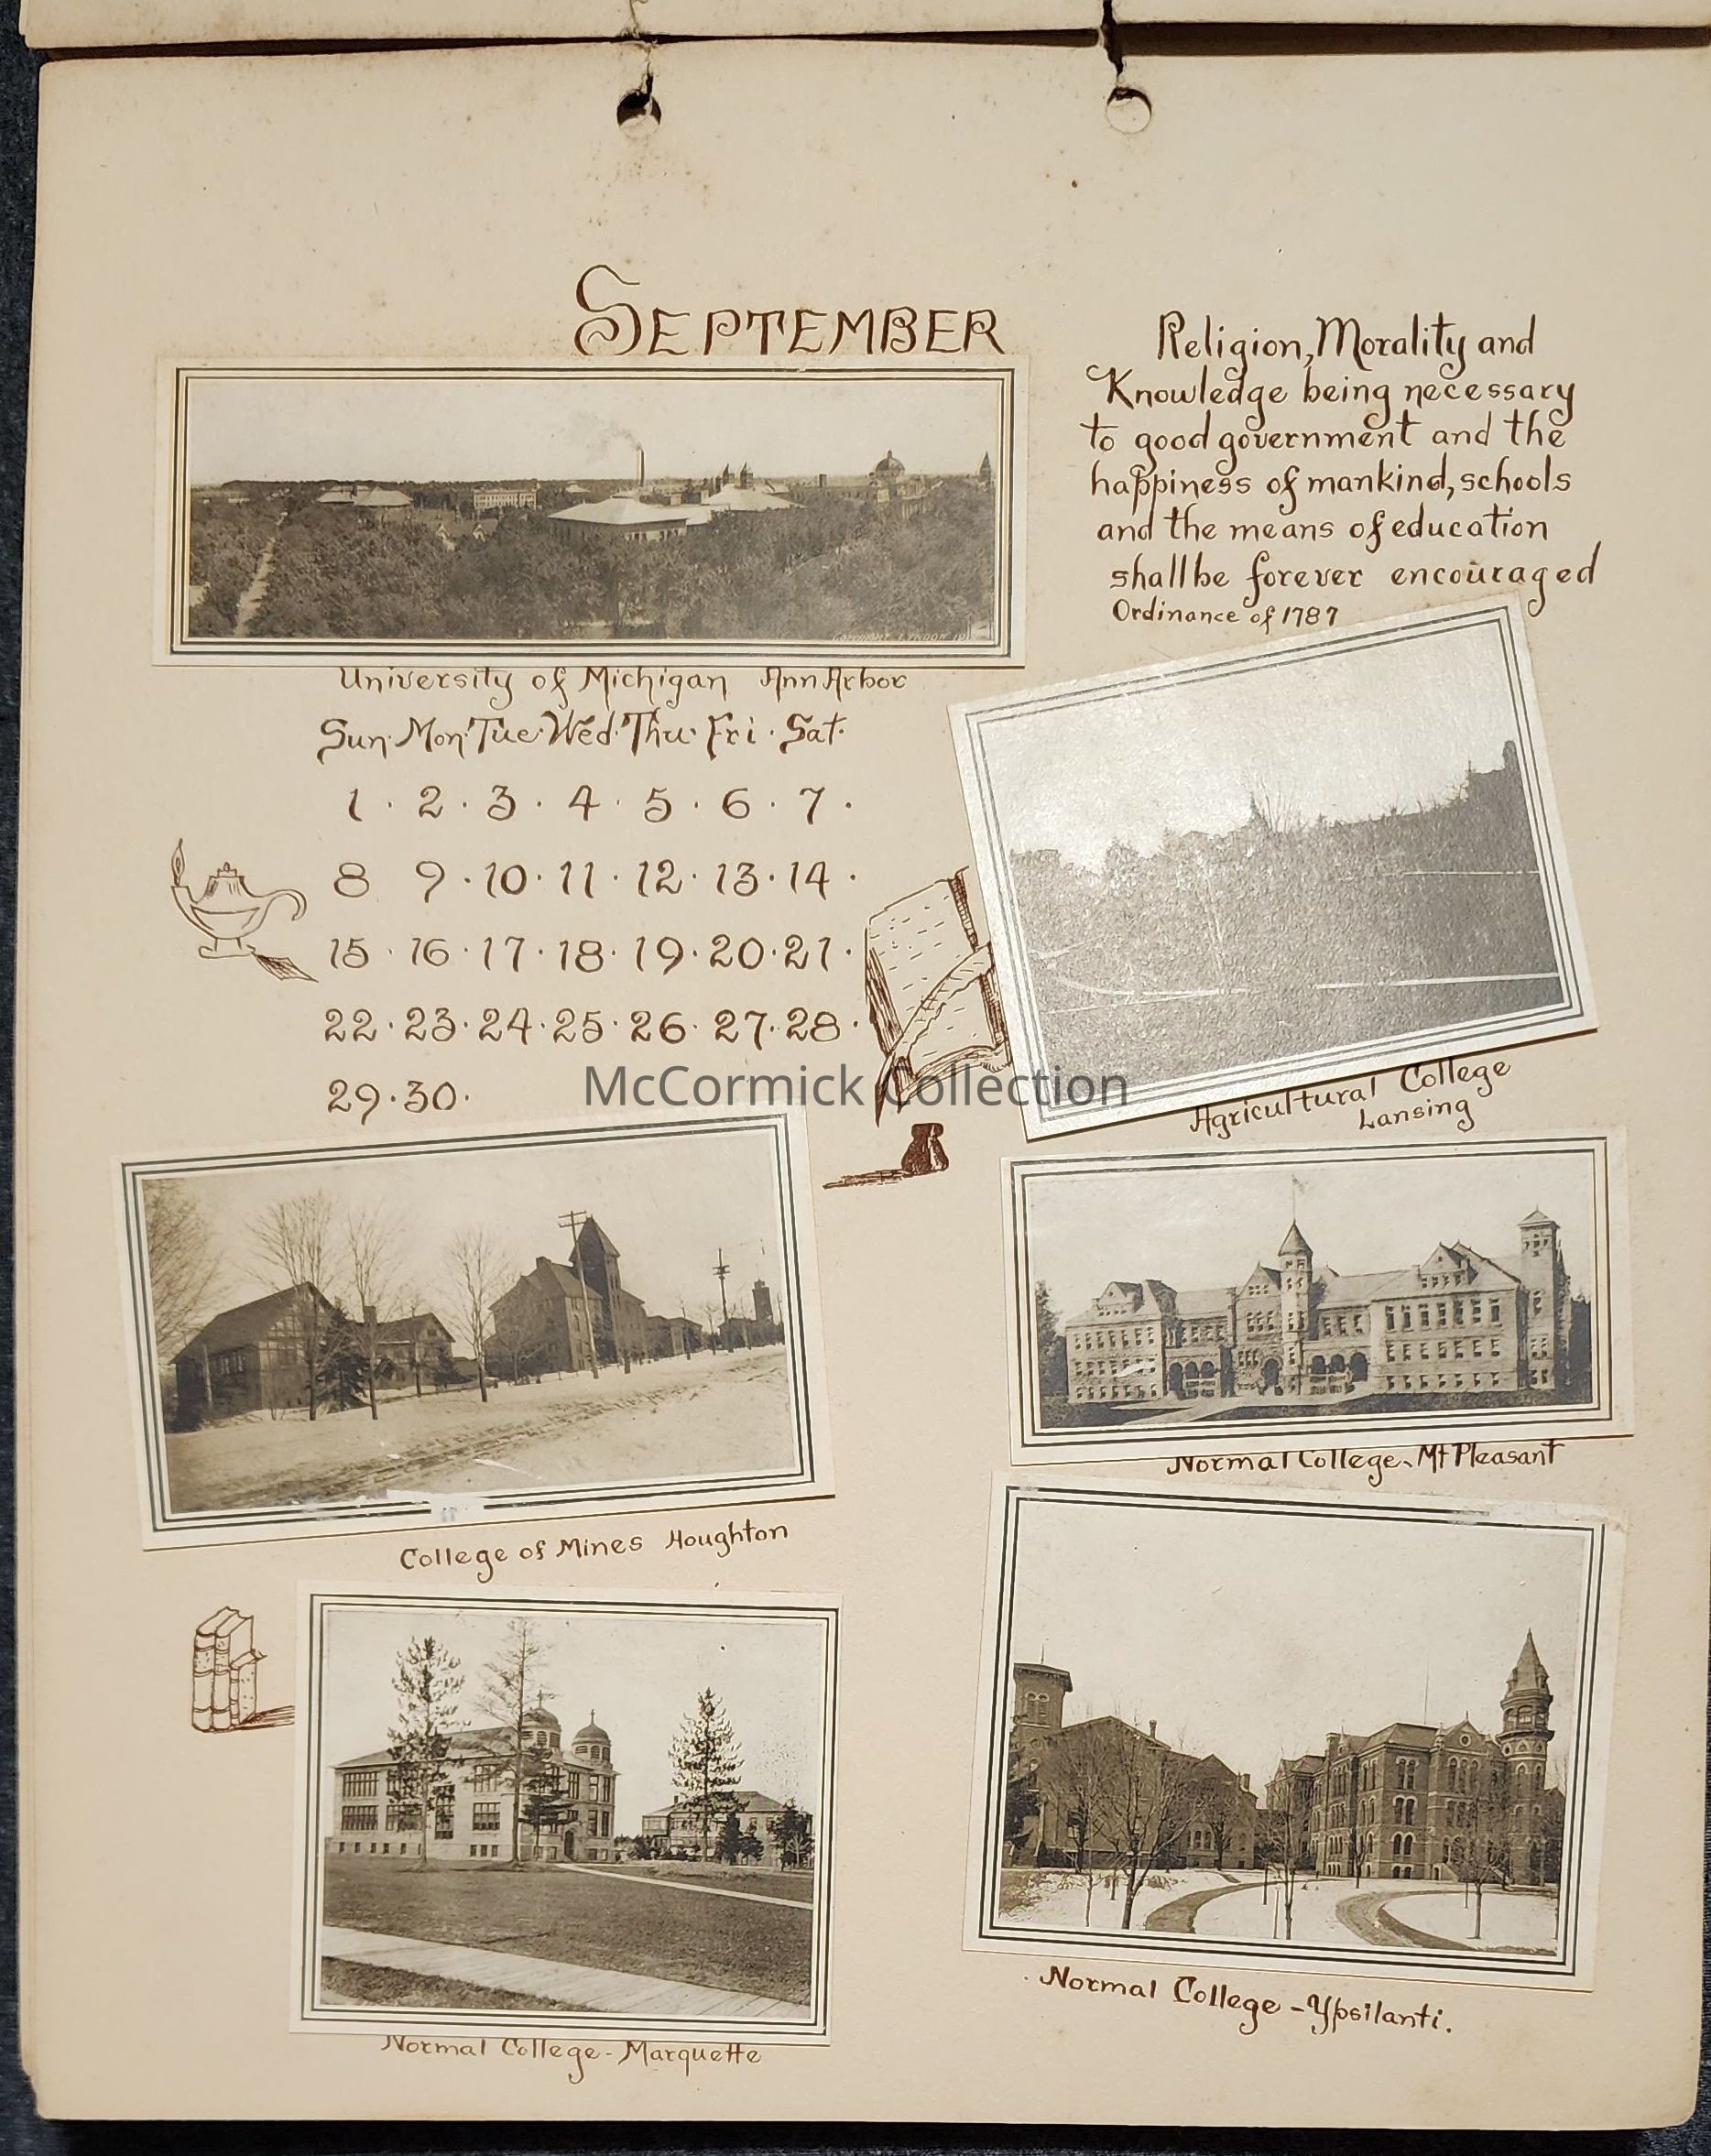 September
Religion, Morality and
Knowledge being necessary
to good government and the
happiness of mankind, schools
and the means of education
shall be forever encouraged
Ordinance of 1787
Copyright Lyndon
University of Michigan Ann Arbor
Sun. Mon. Tue. Wed. Thu. Fri. Sat.
1 . 2 . 3 . 4 . 5 . 6 . 7 .
8 9 . 10 . 11 . 12 . 13 . 14 .
15 . 16 . 17 . 18 . 19 . 20 . 21 .
22 . 23 . 24 . 25 . 26 . 27 . 28 .
29 . 30 .
McCormick Collection
Agricultural College
Lansing
Normal College - Mt Pleasant
College of Mines Houghton
Normal College - Ypsilanti.
Normal College - Marquette